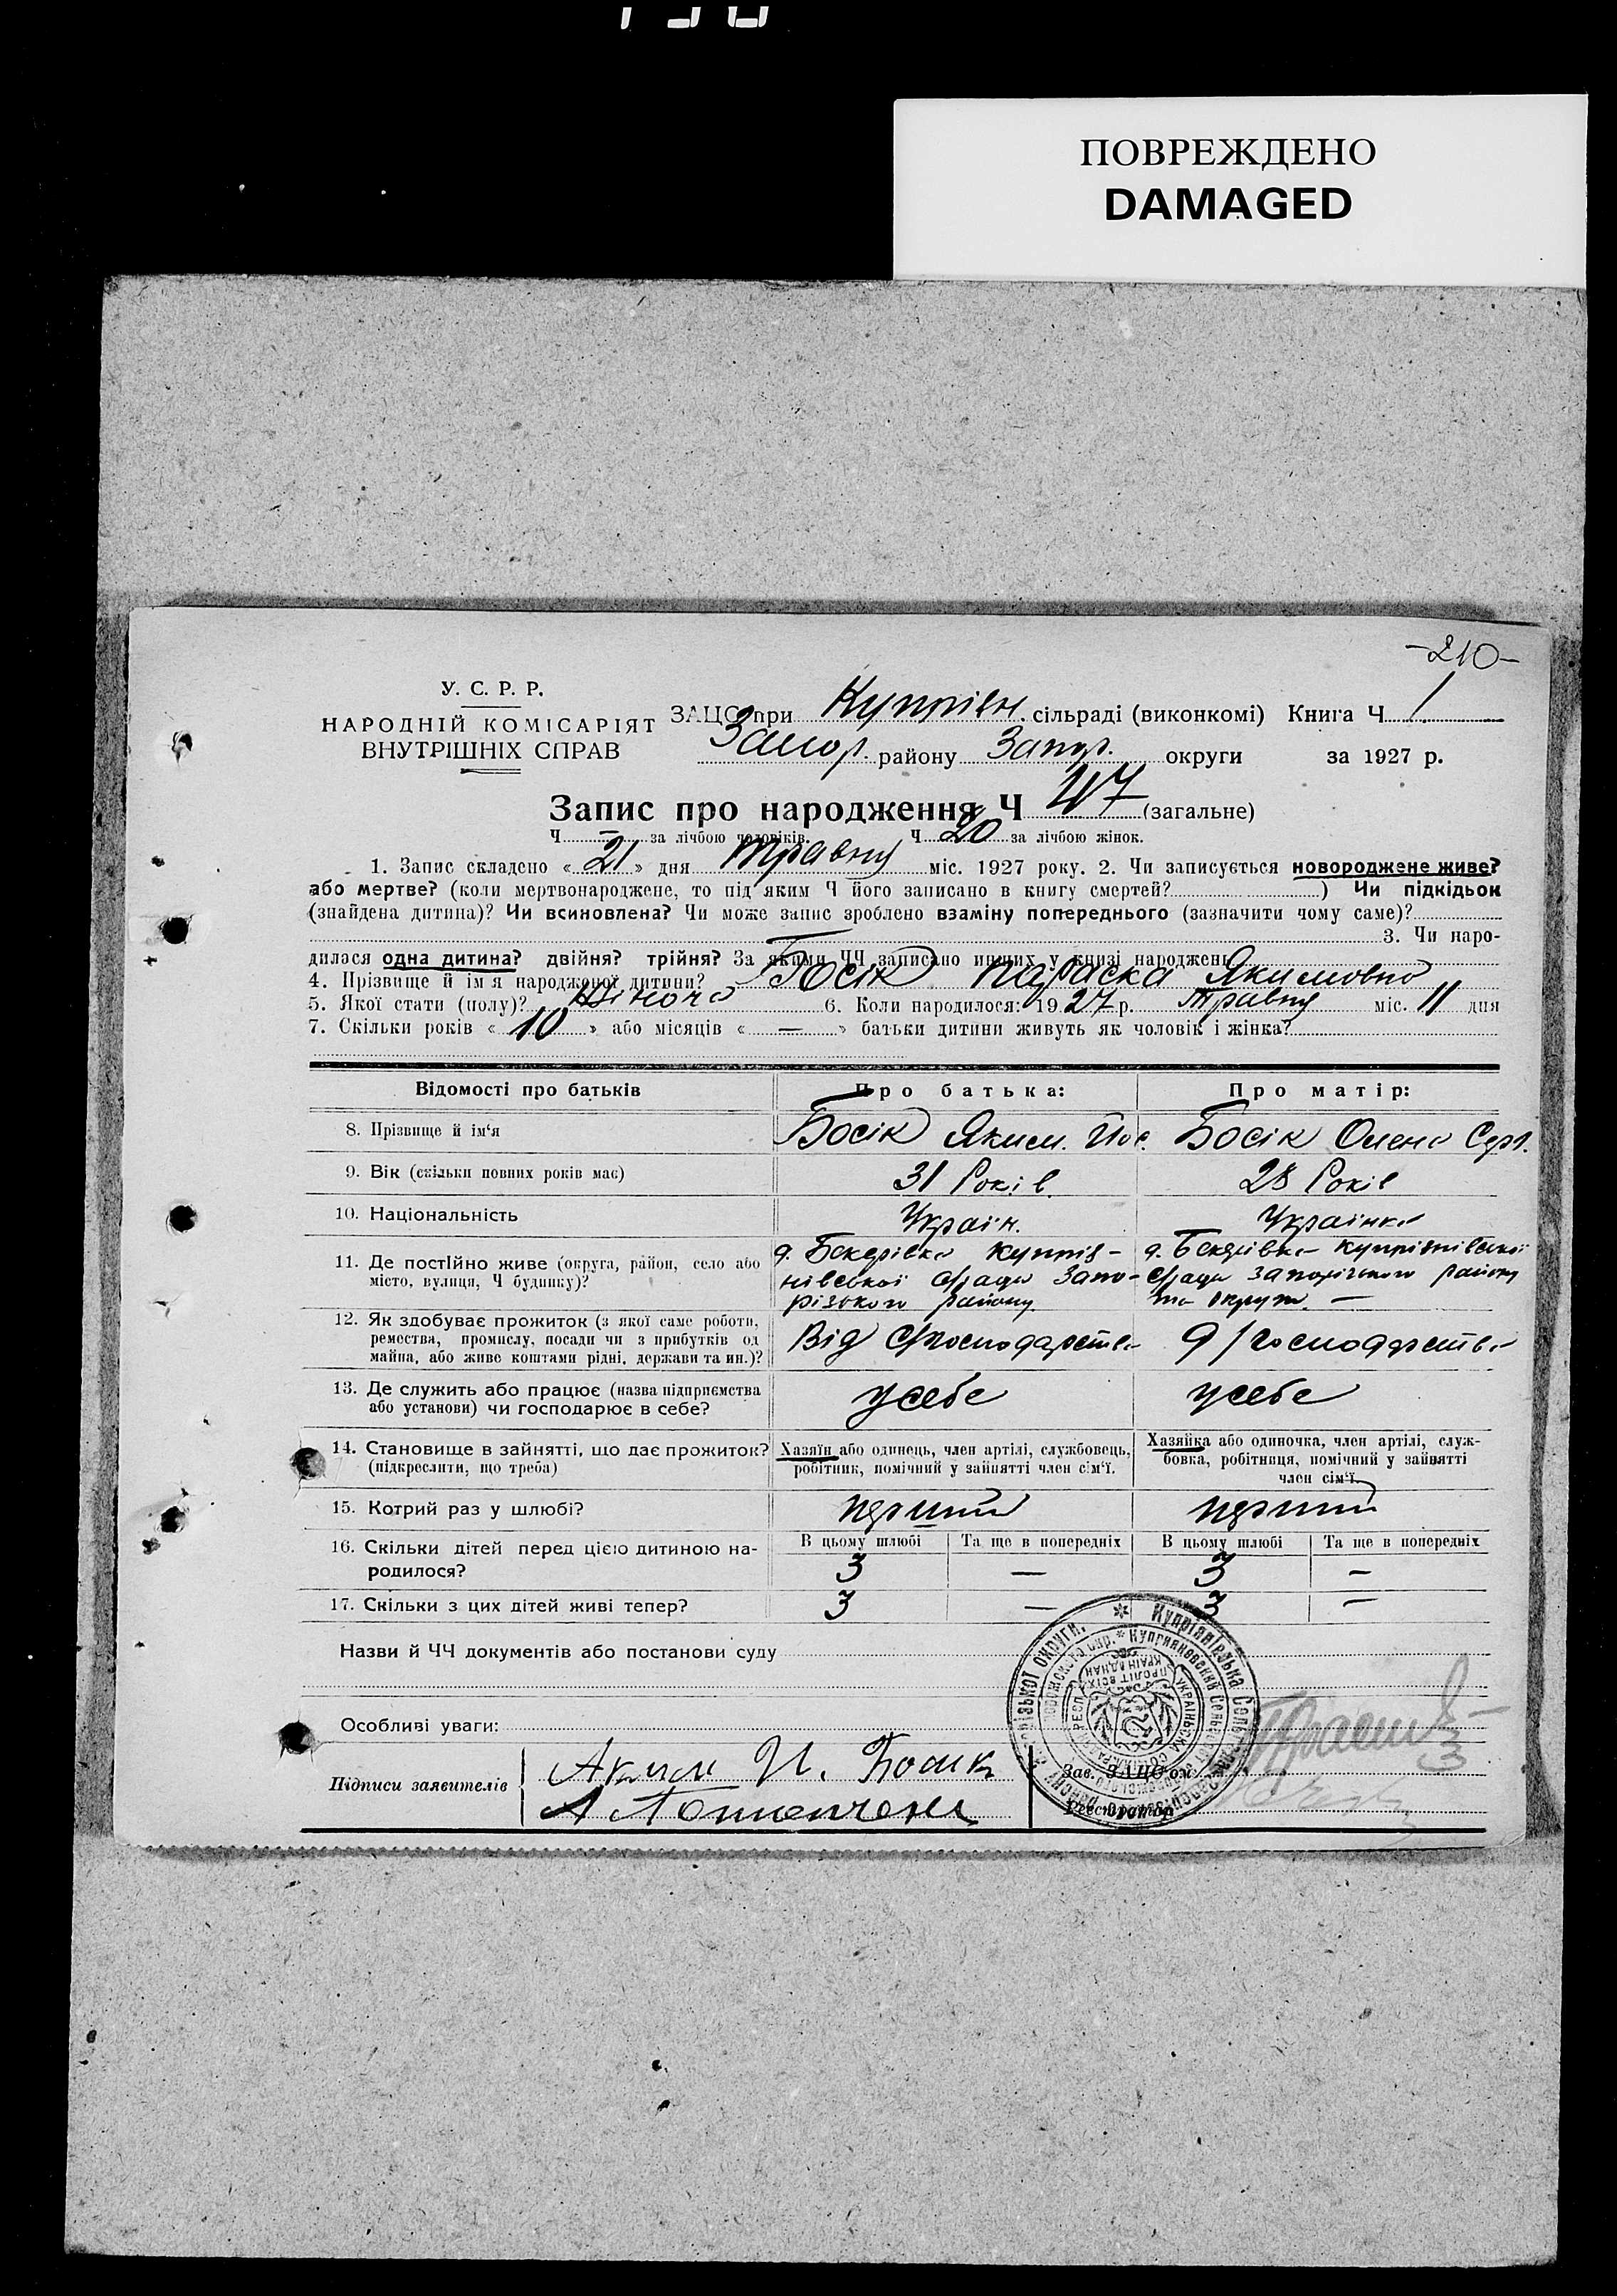 ПОВРЕЖДЕНО
DAMAGED
-210-
У. С. Р. Р.
НАРОДНІЙ КОМІСАРІЯТ
ВНУТРІШНІХ СПРАВ
ЗАЦС при Купріян. сільраді (виконкомі) Книга Ч 1
Запор. району Запор. округи за 1927 р.
Запис про народження Ч 47 (загальне)
Ч — за лічбою чоловіків. Ч 20 за лічбою жінок.
1. Запис складено « 21 » дня травня міс. 1927 року. 2. Чи записується новороджене живе?
або мертве? (коли мертвонароджене, то під яким Ч його записано в книгу смертей? ) Чи підкідьок
(знайдена дитина)? Чи всиновлена? Чи може запис зроблено взаміну попереднього (зазначити чому саме)?
3. Чи наро-
дилася одна дитина? двійня? трійня? За якими ЧЧ записано инших у книзі народжень
4. Прізвище й ім'я народженої дитини? Босік параска Якимовна
5. Якої стати (полу)? жіноча 6. Коли народилося: 1927 р. травня міс. 11 дня
7. Скільки років « 10 » або місяців « — » батьки дитини живуть як чоловік і жінка?
Відомості про батьків Про батька: Про матір:
8. Прізвище й ім'я Босік Яким. Йос. Босік Олена Серг.
9. Вік (скільки повних років має) 31 Років 28 Років
10. Національність Україн. Українка
11. Де постійно живе (округа, район, село або
місто, вулиця, Ч будинку)?
д. Бекарівка Купрія-
нівської с/ради Запо-
різького району
д. Бекарівка Купріянівської
с/ради Запорізького району
та округи. —
12. Як здобуває прожиток (з якої саме роботи,
ремества, промислу, посади чи з прибутків од
майна, або живе коштами рідні, держави та ин.)?
Від с/господарства с/господарства
13. Де служить або працює (назва підприємства
або установи) чи господарює в себе?
усебе усебе
14. Становище в зайнятті, що дає прожиток?
(підкреслити, що треба)
Хазяїн або одинець, член артілі, службовець,
робітник, помічний у зайнятті член сім'ї.
Хазяйка або одиночка, член артілі, служ-
бовка, робітниця, помічний у зайнятті
член сім'ї.
15. Котрий раз у шлюбі? перший перший
16. Скільки дітей перед цією дитиною на-
родилося?
В цьому шлюбі Та ще в попередніх В цьому шлюбі Та ще в попередніх
3 — 3 —
17. Скільки з цих дітей живі тепер? 3 — 3 —
Назви й ЧЧ документів або постанови суду
Особливі уваги:
Підписи заявителів
Аким И. Босик
Зав. ЗАЦС'ом
Реєстратор